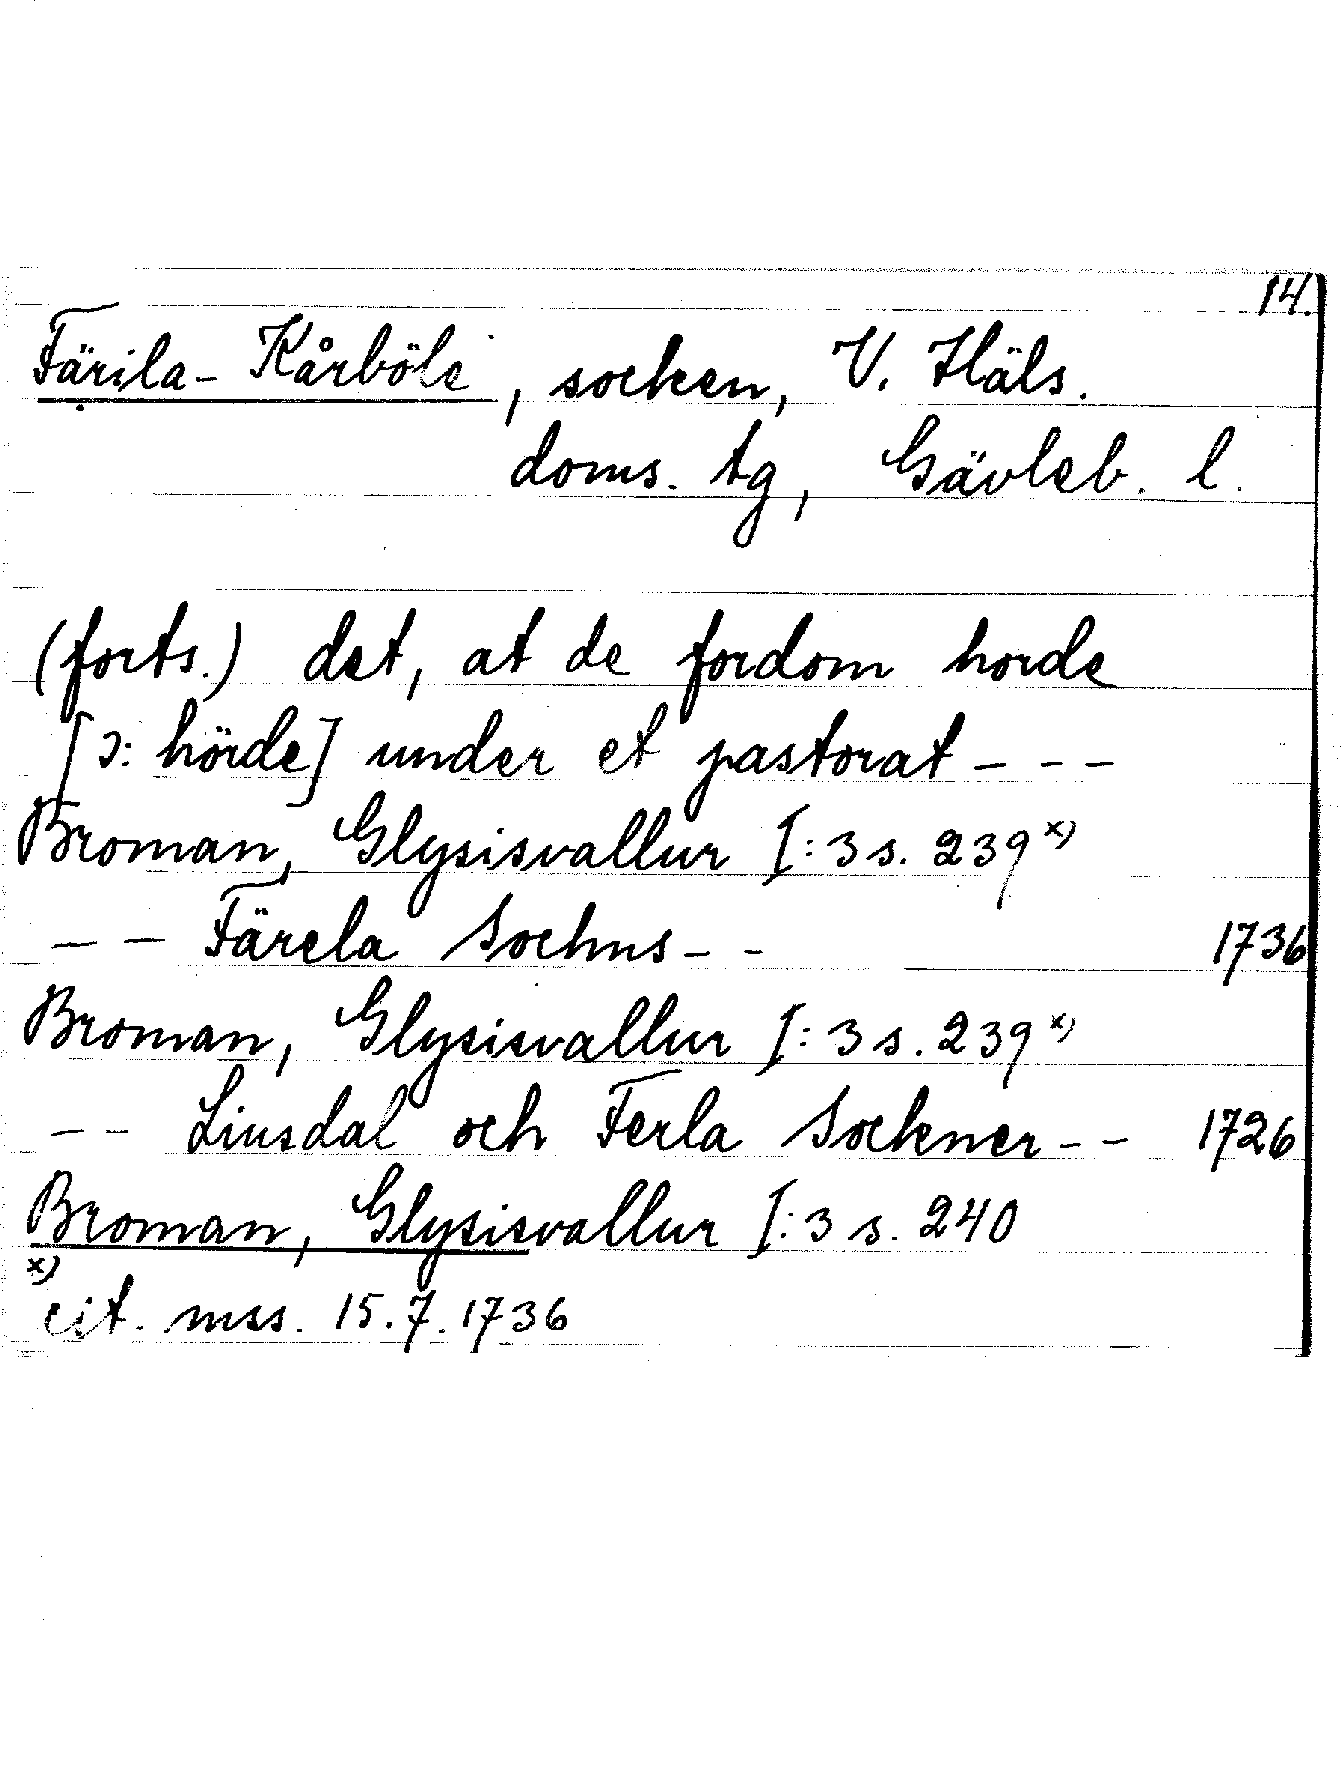 14.
Färila-Kårböle, socken, V. Häls.
doms. tg, Gävleb. l.
(forts.) det, at de fordom horde
[ɔ: hörde] under et pastorat - - -
Broman, Glysisvallur I:3 s. 239 x)
- - Färela Sochns - - 1736
Broman, Glysisvallur I:3 s. 239 x)
- - Liusdal och Ferla Sockner - - 1726
Broman, Glysisvallur I:3 s. 240
x) cit. mss. 15.7.1736